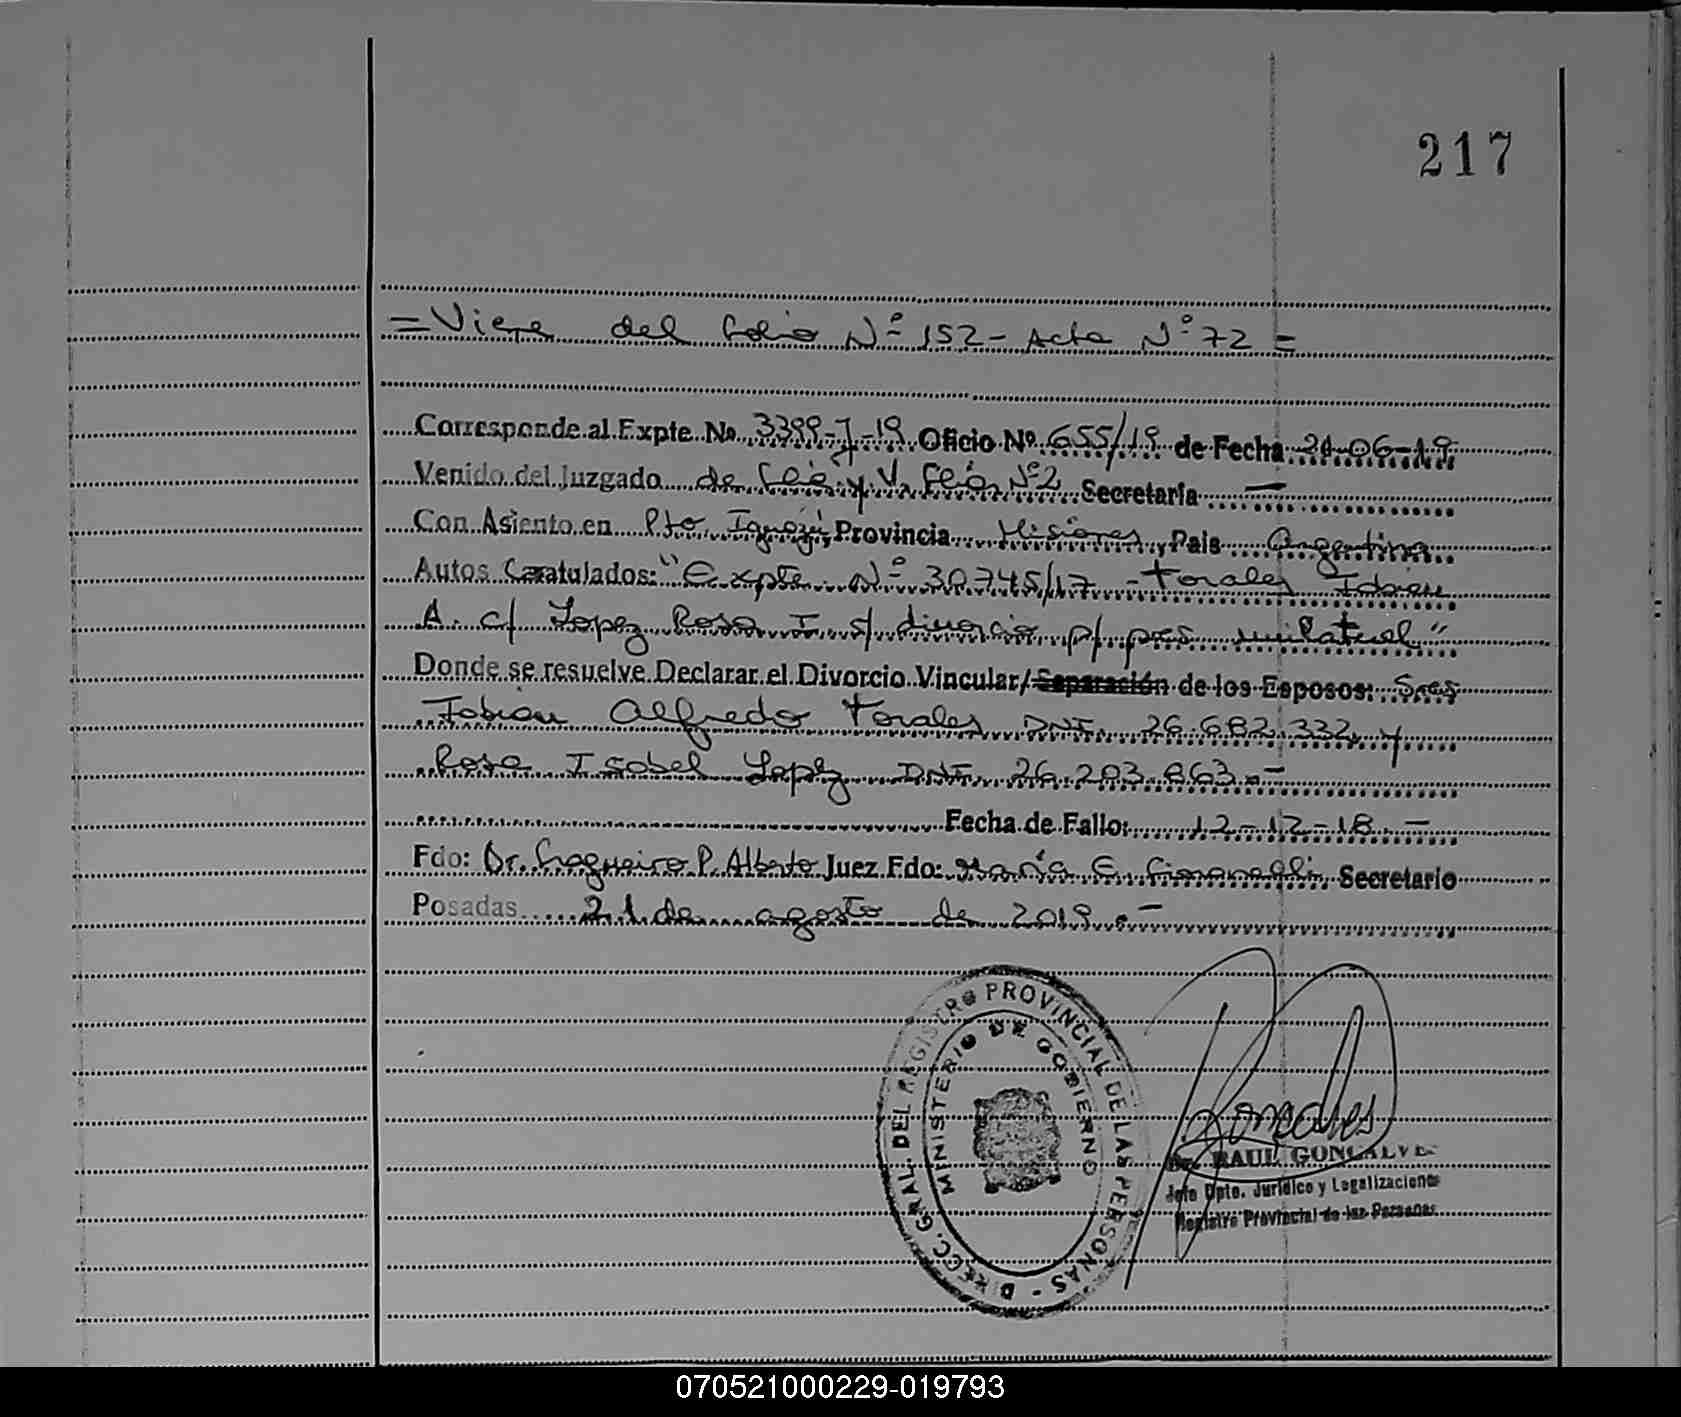 217
= Viene del Folio Nº 152 - Acta Nº 72 =
Corresponde al Expte. No. 3399-J-19 Oficio Nº 655/19 de Fecha 21-06-19
Venido del Juzgado de Flia. y V. Flia. Nº 2 Secretaría -
Con Asiento en Pto. Iguazú, Provincia Misiones, País Argentina
Autos Caratulados: "Expte. Nº 30.745/17 - Forales Fabian
A. c/ Lopez Rosa I. s/ divorcio p/ pres unilateral"
Donde se resuelve Declarar el Divorcio Vincular/Separación de los Esposos: Sres
Fabian Alfredo Forales DNI. 26.682.332, y
Rosa Isabel Lopez DNI. 26.203.863.-
Fecha de Fallo: 12-12-18.-
Fdo: Dr. P. Alberto Juez Fdo: María E. Secretario
Posadas 21 de agosto de 2019.-
DIRECC. GRAL. DEL REGISTRO PROVINCIAL DE LAS PERSONAS -
MINISTERIO DE GOBIERNO
Dr. RAUL GONCALVES
Jefe Dpto. Jurídico y Legalizaciones
Registro Provincial de las Personas
070521000229-019793